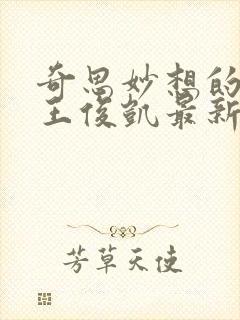 奇思妙想的
王俊凯最新
芳草天使